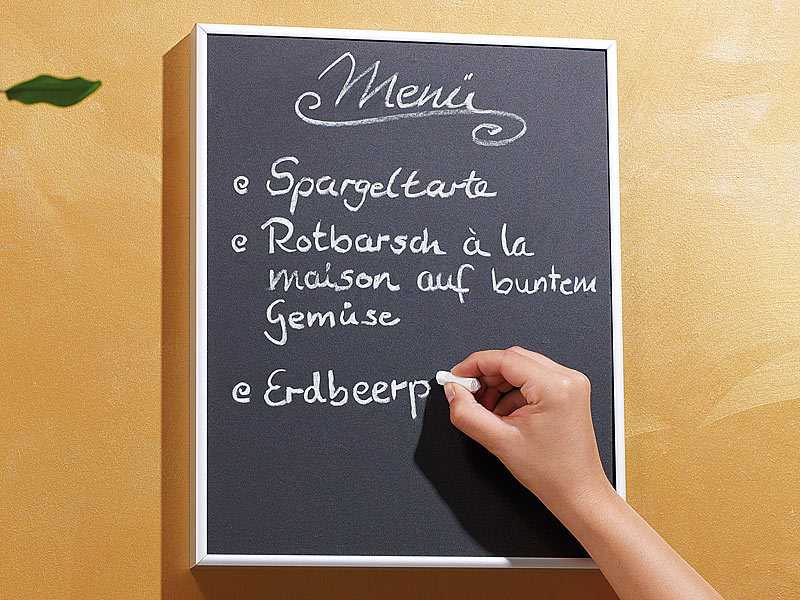 Menü
Spargeltarte
Rotbarsch à la
maison auf buntem
Gemüse
Erdbeerp